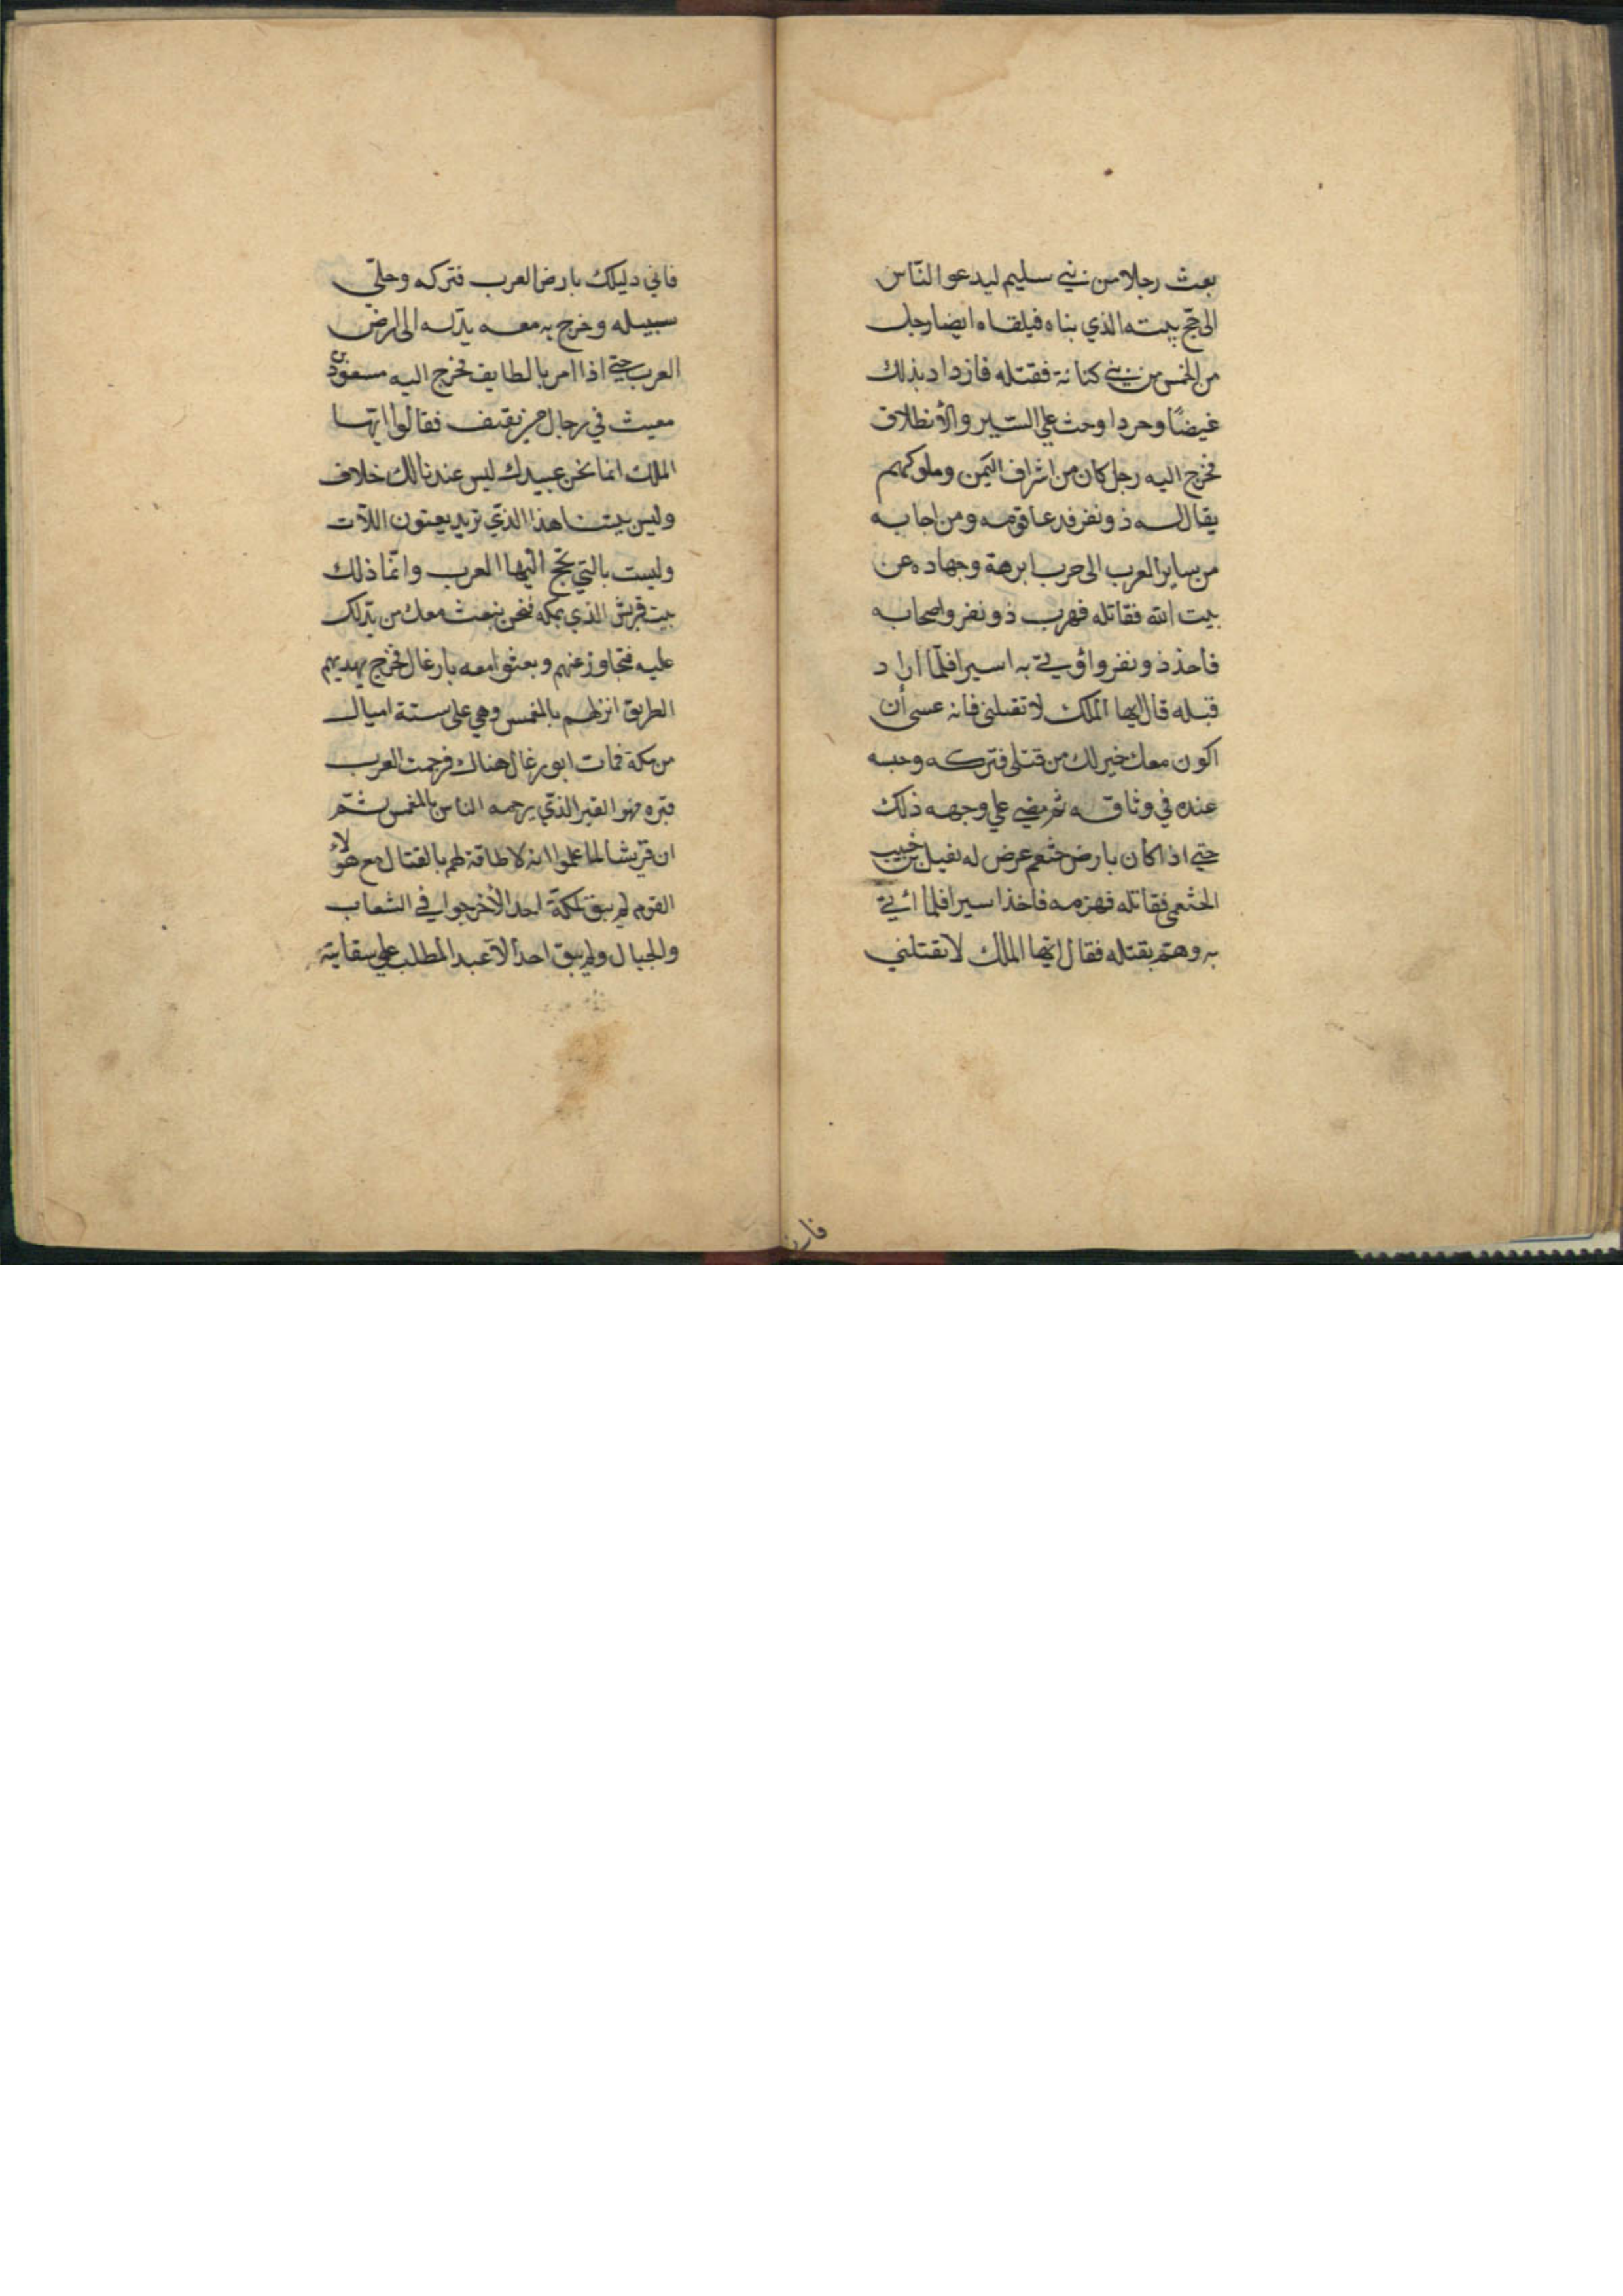 بعث رجلا من بني سليم ليدعو النّاس
الى حج بيته الذي بناه فيلقاه ايضا رجل
من الخمس من بني كنانة فقتله فازداد بذلك
غيضًا وحردا وحث علي السّير والأنطلاق
فخرج اليه رجل كان من اشراف اليمن وملوكهم
يقال له ذو نفر فدعا قومه ومن اجابه
من ساير العرب الى حرب ابرهة وجهاده عن
بيت الله فقاتله فهرب ذو نفر واصحابه
فاخذ ذو نفر واؤتي به اسيرا فلمّا اراد
قبله قال ايها الملك لا تقتلني فانه عسى أن
اكون معك خير لك من قتلي فتركه وحبسه
عنده في وثاقه ثم مضي علي وجهه ذلك
حتي اذا كان بارض خثعم عرض له نفيل بن حبيب
الخثعمي فقاتله فهزمه فاخذ اسيرا فلما ائتي
به وهمّ بقتله فقال ايّها الملك لا تقتلني
فاني دليلك بارض العرب فتركه وخلّي
سبيله وخرج به معه يدّله الى ارض
العرب حتي اذا امر بالطايف فخرج اليه مسعود بن
معيث في رجال من ثقيف فقالوا ايّها
الملك انما نحن عبيدك ليس عندنا لك خلاف
وليس بيتنا هذا الذّي تريد يعنون اللآت
وليست بالتي تحج اليها العرب وانّما ذلك
بيت قريش الذي بمكه فنحن نبعث معك من يدّلك
عليه فتجاوز عنهم وبعثوا معه بارغال فخرج يهديهم
الطريق انزلهم بالمغمس وهي على ستة اميال
من مكة فمات ابو رغال هناك فرجمت العرب
قبره فهو القبر الذّي يرجمه الناس بالمغمس ثمّ
ان قريشا لما علموا انه لا طاقة لهم بالقتال مع هؤلاء
القوم لم يبق بمكة احد الأخرجوا في الشعاب
والجبال ولم يبق احد الا عبد المطلب علي سقايته